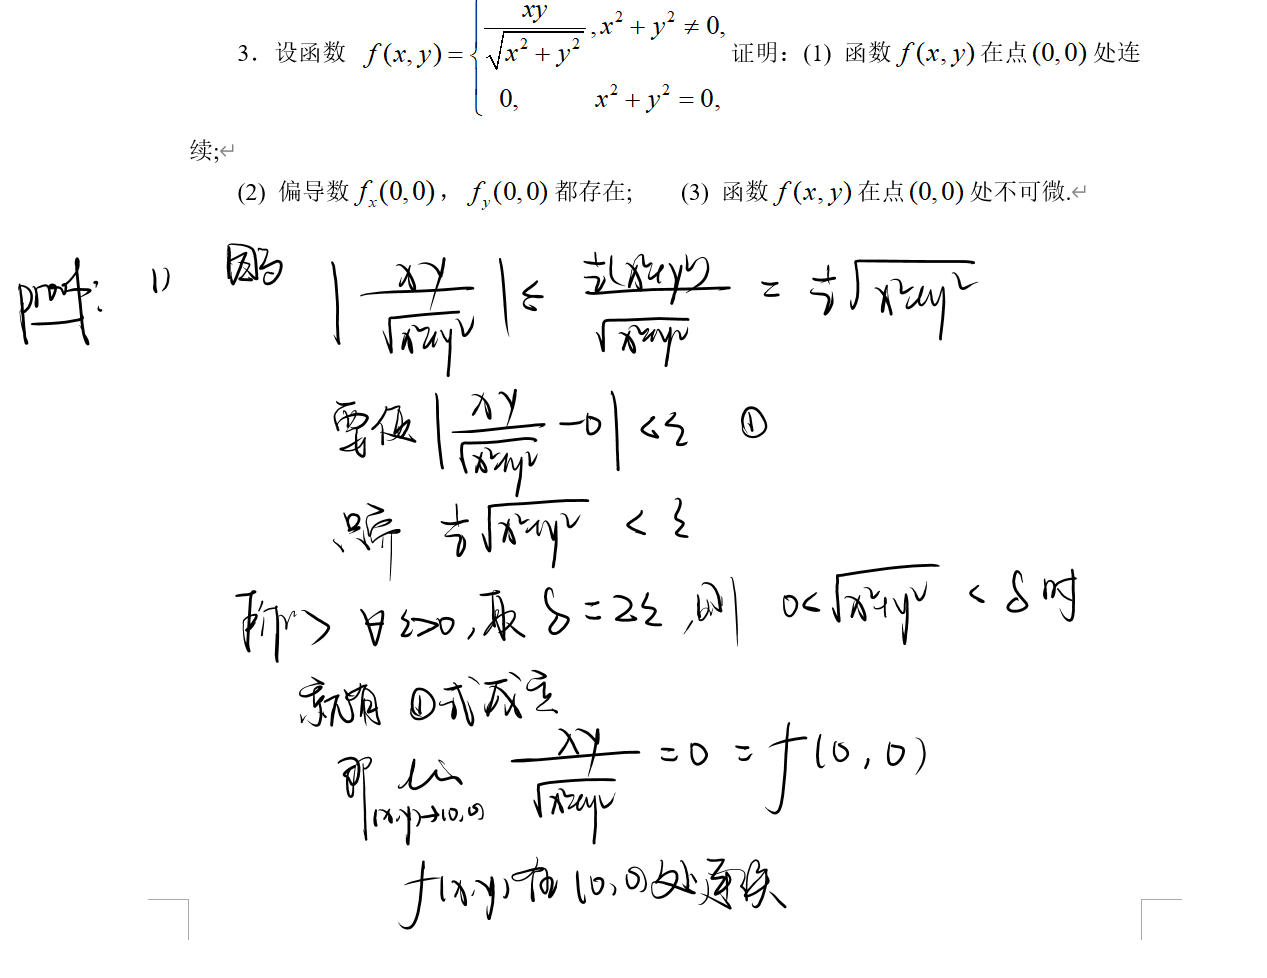 3. 设函数 f(x,y)={ xy/√(x²+y²), x²+y²≠0, 证明: (1) 函数 f(x,y) 在点 (0,0) 处连
0, x²+y²=0,
续;↵
(2) 偏导数 fₓ(0,0), f_y(0,0) 都存在; (3) 函数 f(x,y) 在点 (0,0) 处不可微.↵
proof: 1) 因为 |xy/√(x²+y²)| ≤ ½(x²+y²)/√(x²+y²) = ½√(x²+y²)
要使 |xy/√(x²+y²) − 0| < ε ①
只需 ½√(x²+y²) < ε
所以 ∀ε>0, 取 δ=2ε, 则 0<√(x²+y²) < δ 时
就有 ①式成立
即 lim (x,y)→(0,0) xy/√(x²+y²) = 0 = f(0,0)
f(x,y) 在 (0,0) 处连续